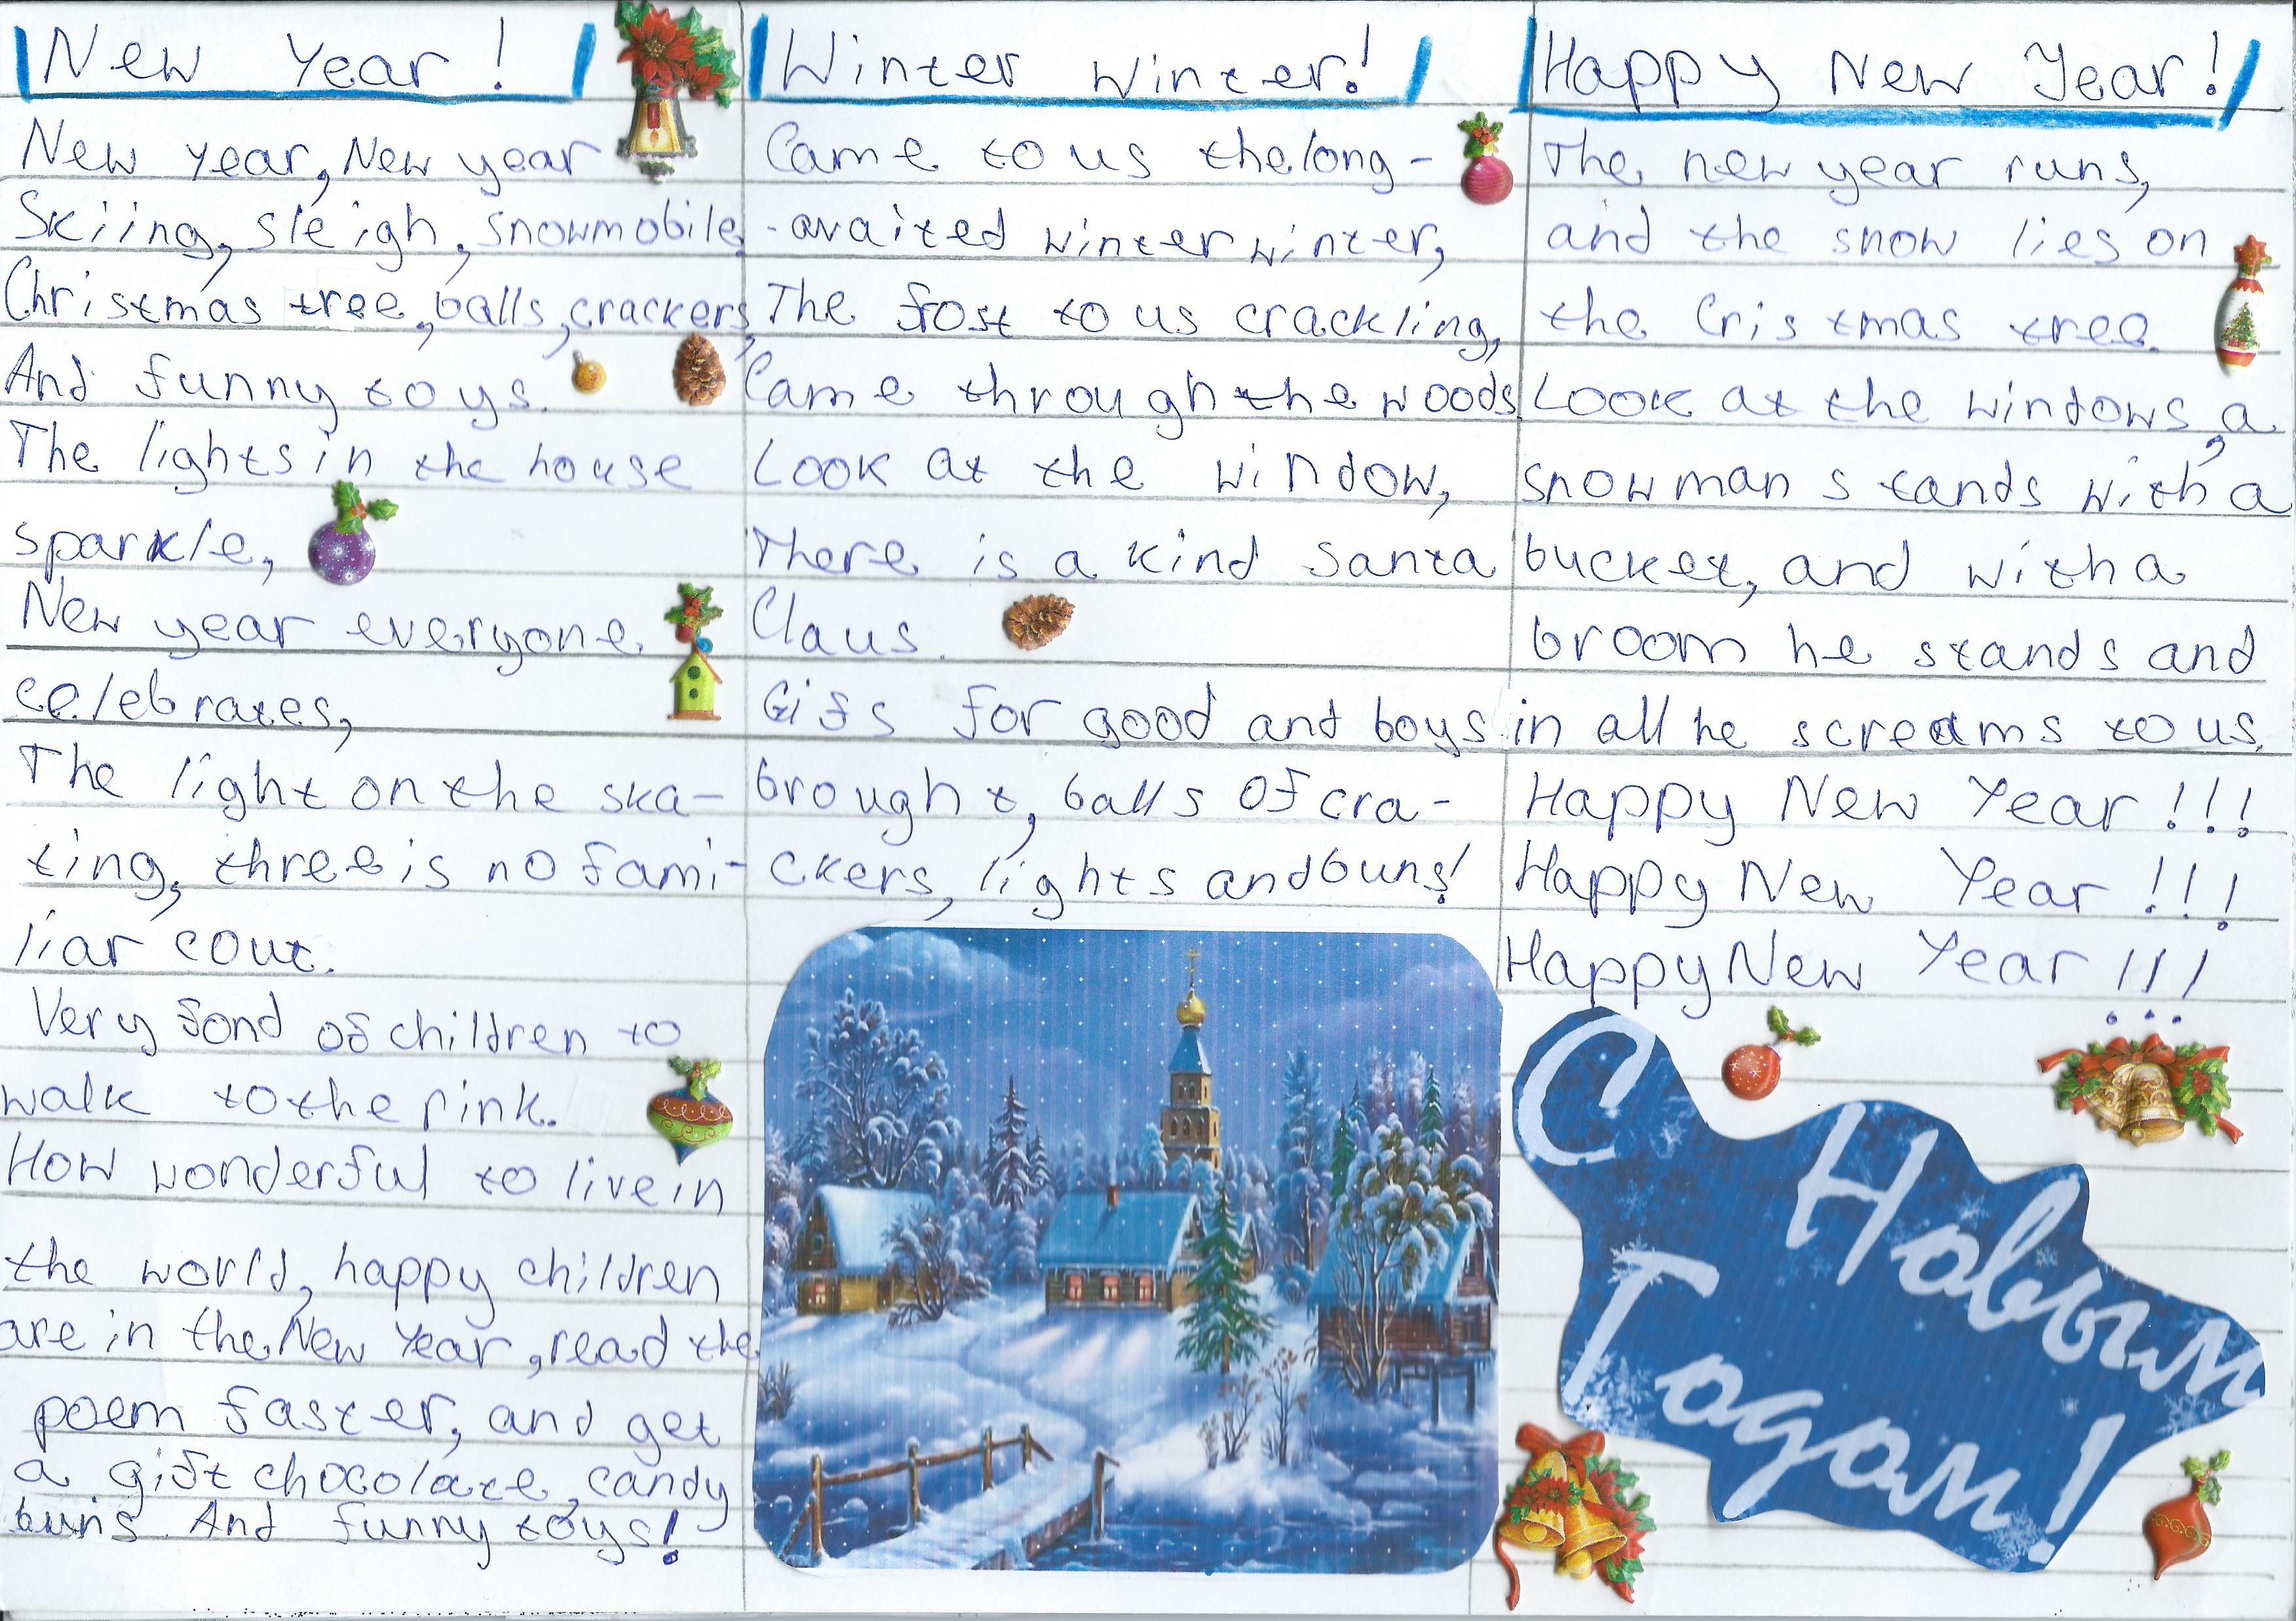 New Year!
New year, New year
Skiing, sleigh, snowmobile,
Christmas tree, balls, crackers,
And funny toys.
The lights in the house
sparkle,
New year everyone
celebrates,
The light on the ska-
ting, three is no fami-
liar cout.
Very fond of children to
walk to the rink.
How wonderful to live in
the world, happy children
are in the New Year, read the
poem faster, and get
a gift chocolate, candy
buns. And funny toys!
Winter winter!
Came to us the long-
-avaited winter winter,
The frost to us crackling,
Came through the woods,
Look at the window,
There is a kind Santa
Claus.
Gifs for good and boys
brought, balls of cra-
ckers, lights and buns!
Happy New Year!
The new year runs,
and the snow lies on
the Cristmas tree.
Look at the windows, a
snowman stands with a
bucket, and with a
broom he stands and
in all he screams to us
Happy New Year!!!
Happy New Year!!!
Happy New Year!!!
С Новым
Годом!